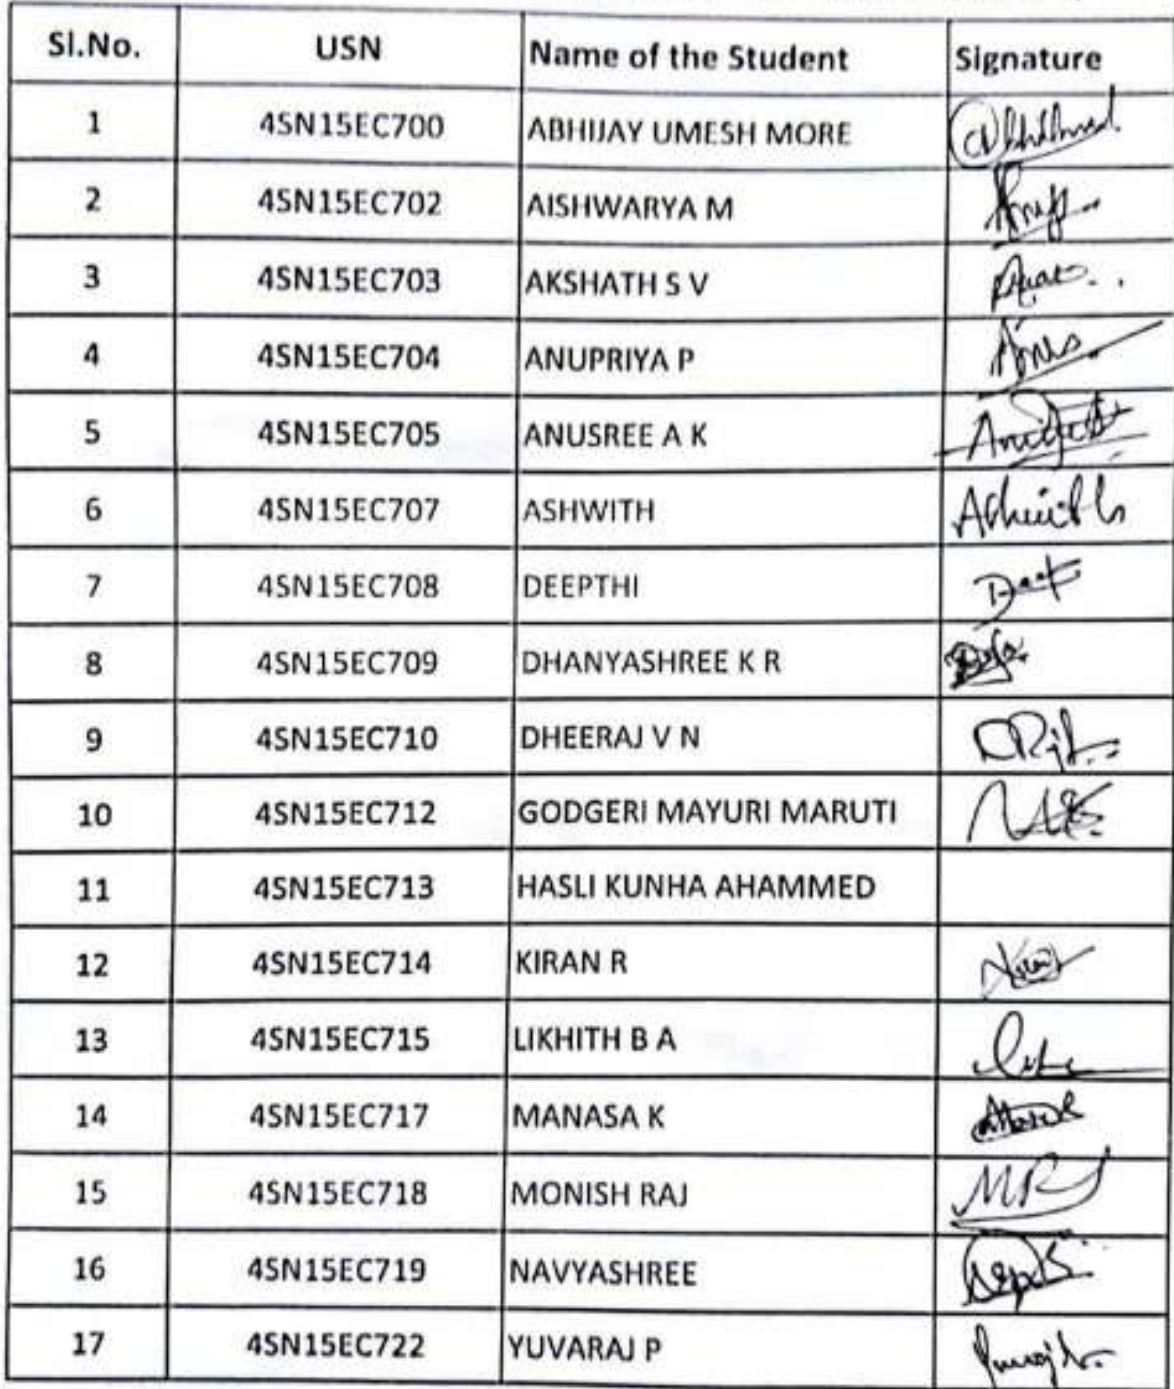 Sl.No. USN Name of the Student Signature
1 4SN15EC700 ABHIJAY UMESH MORE
2 4SN15EC702 AISHWARYA M
3 4SN15EC703 AKSHATH S V
4 4SN15EC704 ANUPRIYA P
5 4SN15EC705 ANUSREE A K
6 4SN15EC707 ASHWITH
7 4SN15EC708 DEEPTHI
8 4SN15EC709 DHANYASHREE K R
9 4SN15EC710 DHEERAJ V N
10 4SN15EC712 GODGERI MAYURI MARUTI
11 4SN15EC713 HASLI KUNHA AHAMMED
12 4SN15EC714 KIRAN R
13 4SN15EC715 LIKHITH B A
14 4SN15EC717 MANASA K
15 4SN15EC718 MONISH RAJ
16 4SN15EC719 NAVYASHREE
17 4SN15EC722 YUVARAJ P